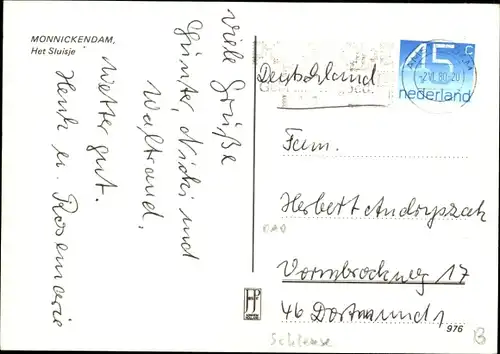 MONNICKENDAM,
Het Sluisje
Viele Grüße
Günter, Nicki und
Waltraud,
Wetter gut.
Henk u. Rosemarie
45 c
nederland
-2.VI.80
Deutschland
Fam.
Herbert Andryszak
Vormbrockweg 17
46 Dortmund 1
976
Schleuse